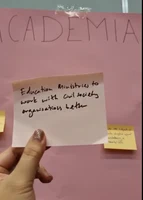 ACADEMIA
Education Ministries to
work with civil society
organisations better